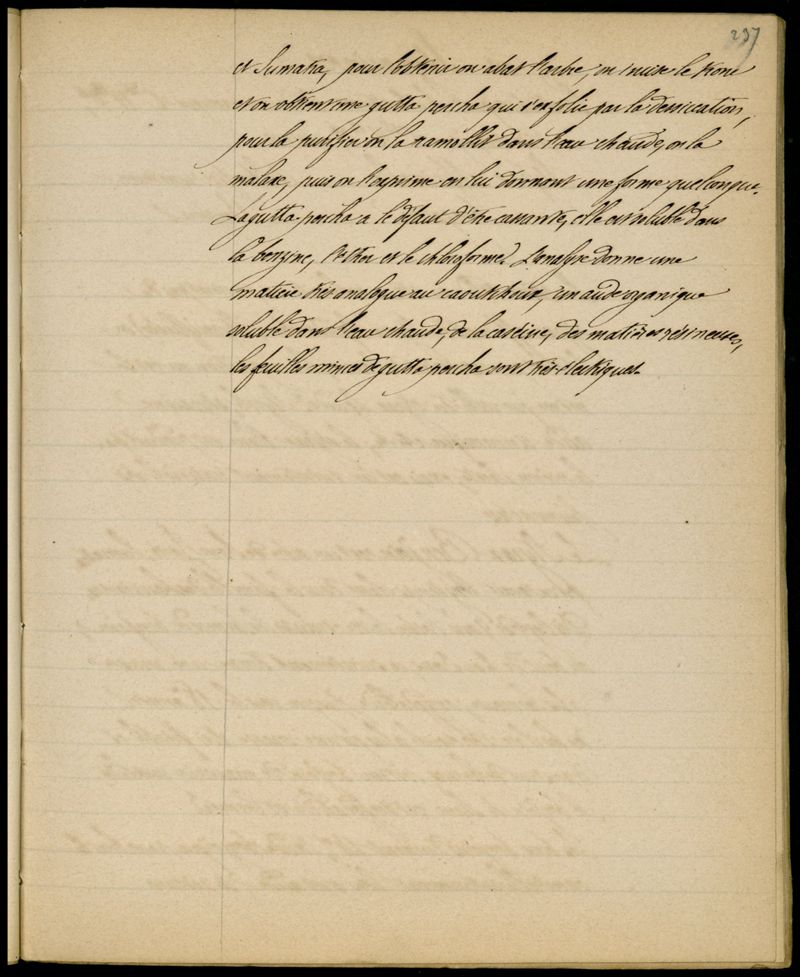 237
et Sumatra, pour l'obtenir on abat l'arbre, on incise le tronc
et on obtient une gutta percha qui s'exfolie par la dessication,
pour la purifier on la ramollit dans l'eau chaude, on la
malaxe, puis on l'exprime en lui donnant une forme quelconque.
La gutta-percha a le défaut d'être cassante, elle est soluble dans
la benzine, l'éther et le chloroforme. L'analyse donne une
matière très analogue au caoutchouc, un acide organique
soluble dans l'eau chaude, de la caséine, des matières résineuses,
les feuilles minces de gutta percha sont très électriques.